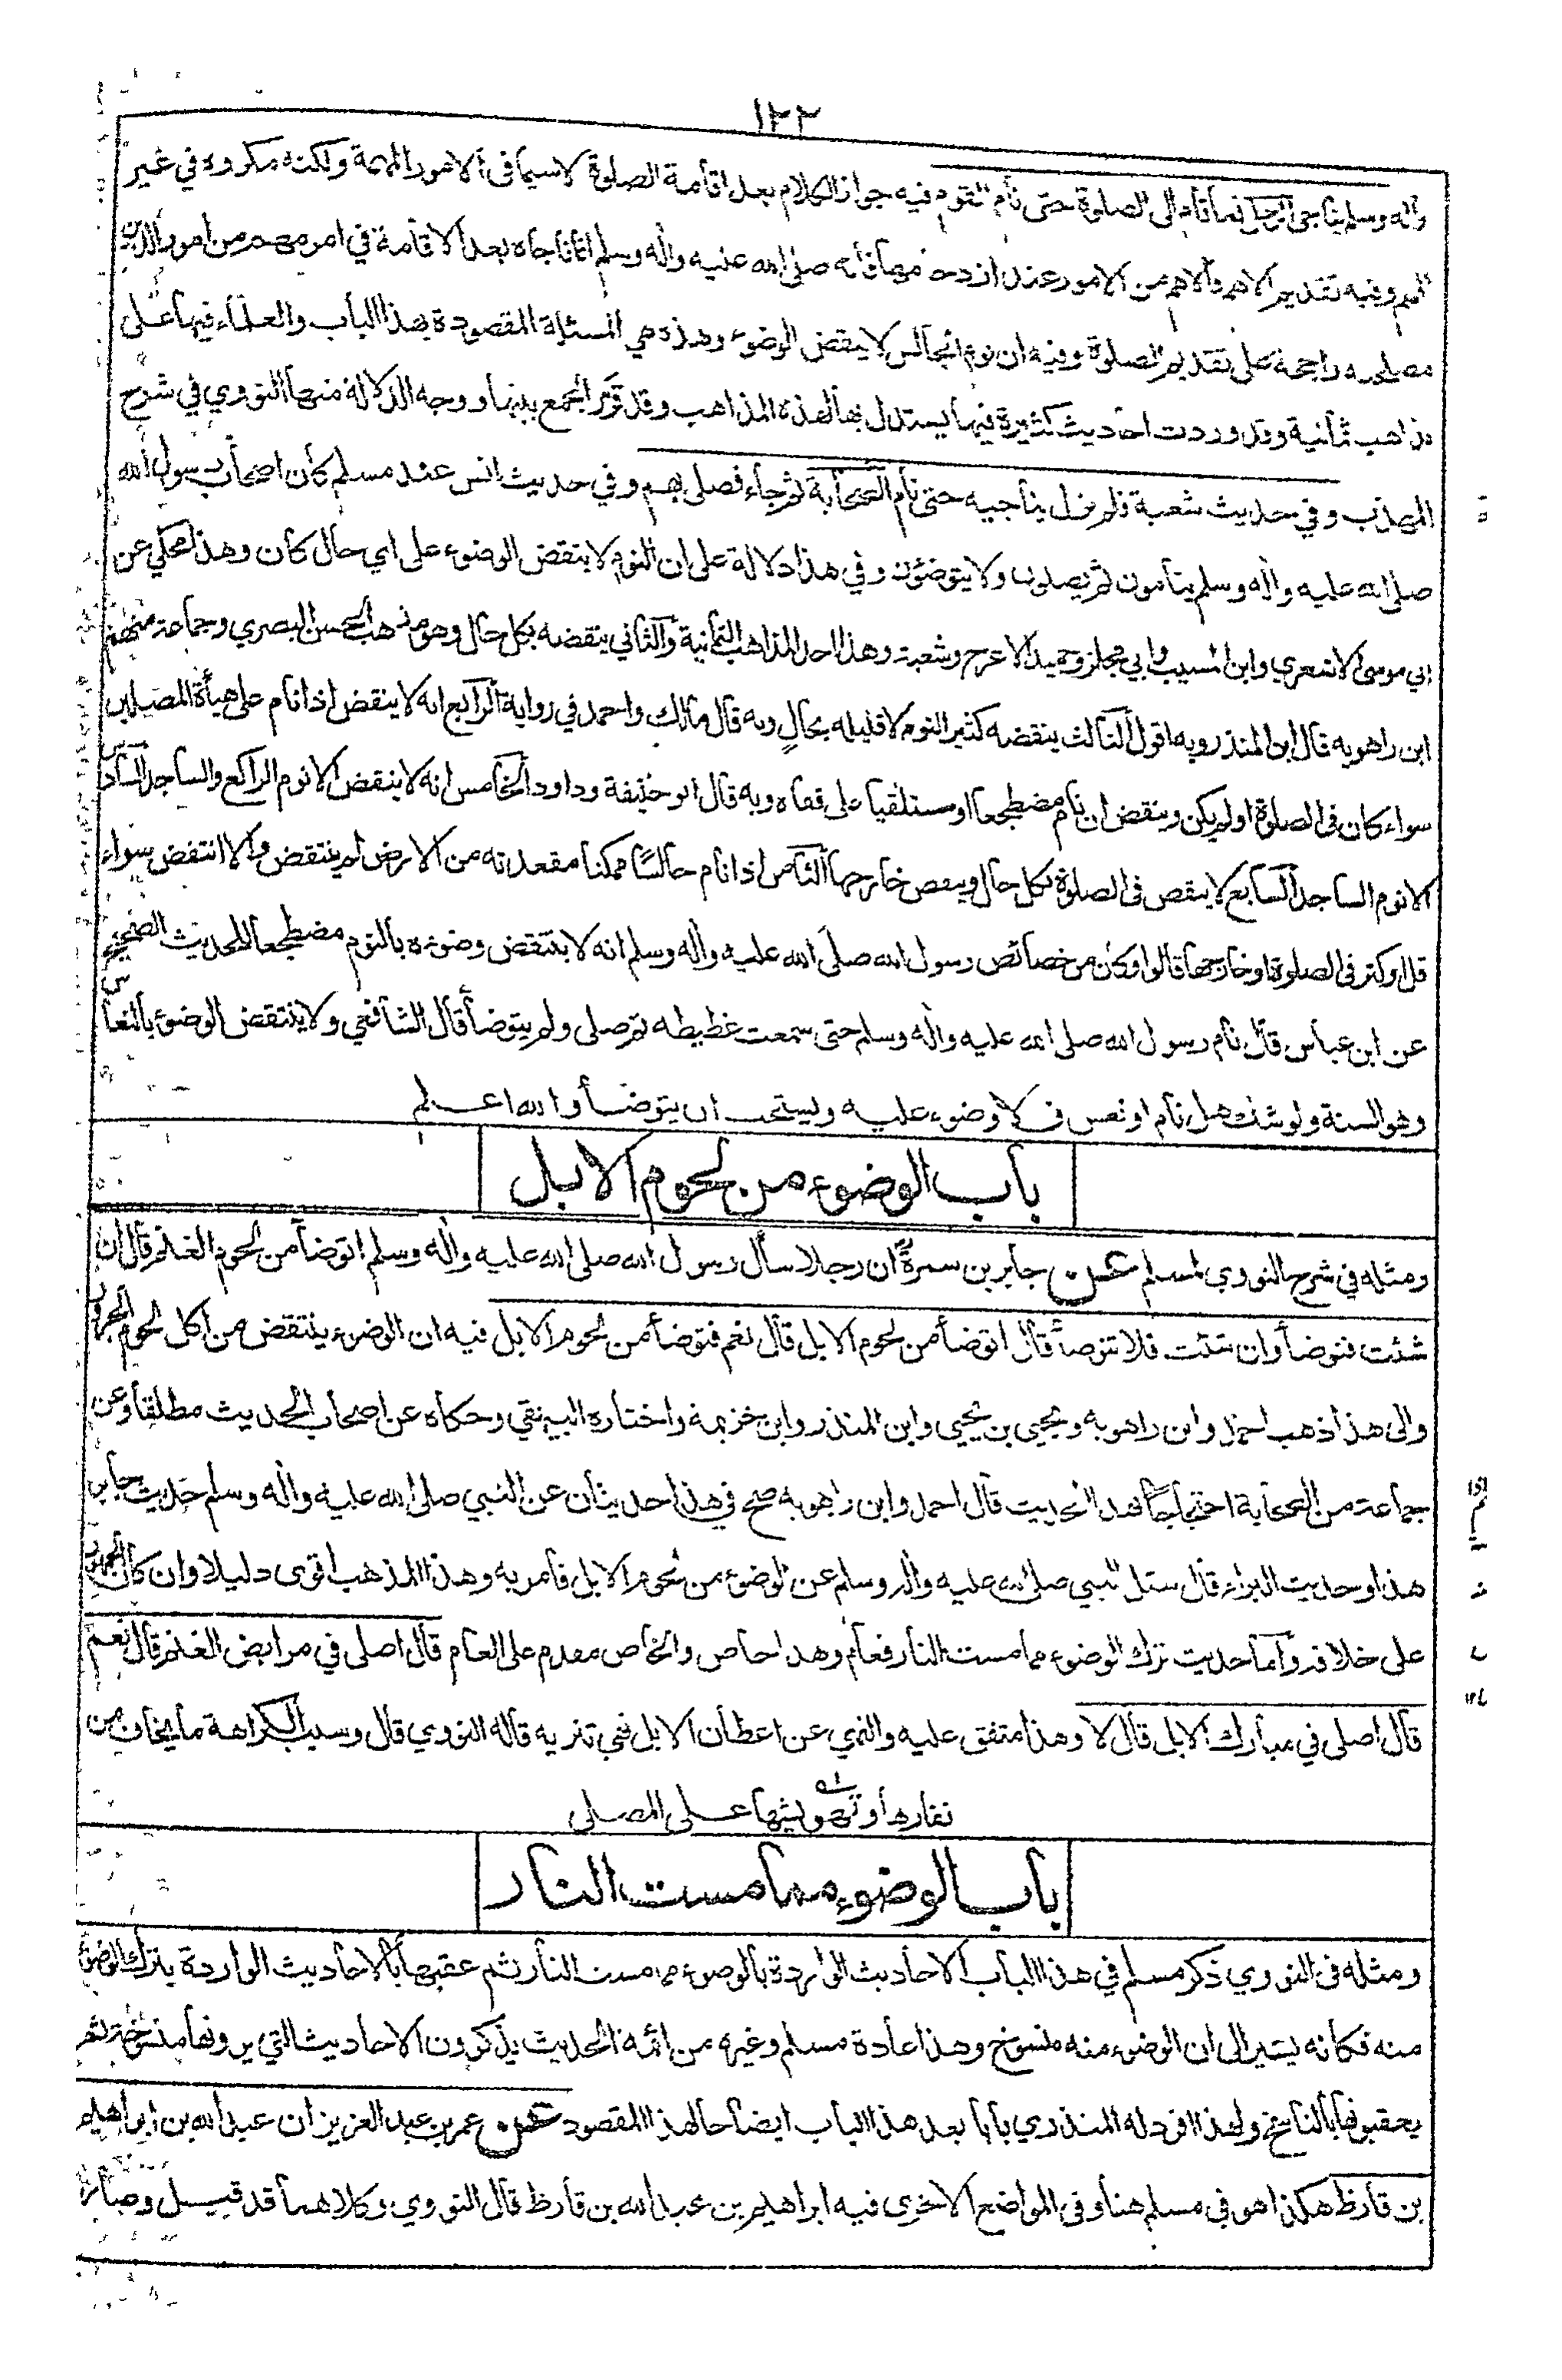 ١٢٢
واله وسلم يناجي الرجل فما قام الى الصلوة حتى نام القوم فيه جواز الكلام بعد اقامة الصلوة لاسيما في الامور المهمة ولكنه مكروه في غير
المهم وفيه تقديم الاهم فالاهم من الامور عند ازدحامها فانه صلى الله عليه واله وسلم انما ناجاه بعد الاقامة في امر مهم من امور الدين
مصلحته راجحة على تقديم الصلوة وفيه ان نوم الجالس لا ينقض الوضوء وهذه هي المسئلة المقصودة بهذا الباب والعلماء فيها على
مذاهب ثمانية وقد وردت احاديث كثيرة فيها يستدل بها لهذه المذاهب وقد قرر الجمع بينها ووجه الدلالة منها النووي في شرح
المهذب وفي حديث شعبة فلم يزل يناجيه حتى نام الصحابة ثم جاء فصلى بهم وفي حديث انس عند مسلم كان اصحاب رسول الله
صلى الله عليه واله وسلم ينامون ثم يصلون ولا يتوضئون وفي هذا دلالة على ان النوم لا ينقض الوضوء على اي حال كان وهذا محكي عن
ابي موسى الاشعري وابن المسيب وابي مجلز وحميد الاعرج وشعبة وهذا احد المذاهب الثمانية والثاني ينقضه بكل حال وهو مذهب الحسن البصري وجماعة منهم
ابن راهويه قال ابن المنذر وبه اقول الثالث ينقضه كثير النوم لا قليله بحال وبه قال مالك واحمد في رواية الرابع انه لا ينقض اذا نام على هيأة المصلين
سواء كان في الصلوة اولم يكن وينقض ان نام مضطجعا او مستلقيا على قفاه وبه قال ابو حنيفة وداود الخامس انه لا ينقض الا نوم الراكع والساجد السادس
الا نوم الساجد السابع لا ينقض في الصلوة بكل حال وينقض خارجها الثامن اذا نام جالسا ممكنا مقعدته من الارض لم ينتقض والا انتقض سواء
قل او كثر في الصلوة او خارجها قالوا وكان من خصائص رسول الله صلى الله عليه واله وسلم انه لا ينتقض وضوءه بالنوم مضطجعا للحديث الصحيح
عن ابن عباس قال نام رسول الله صلى الله عليه واله وسلم حتى سمعت غطيطه ثم صلى ولم يتوضأ قال الشافعي ولا ينتقض الوضوء بالنعاس
وهو السنة ولو شك هل نام او نعس فلا وضوء عليه ويستحب ان يتوضأ والله اعلم
باب الوضوء من لحوم الابل
ومثله في شرح النووي لمسلم عن جابر بن سمرة ان رجلا سأل رسول الله صلى الله عليه واله وسلم اتوضأ من لحوم الغنم قال ان
شئت فتوضأ وان شئت فلا تتوضأ قال اتوضأ من لحوم الابل قال نعم فتوضأ من لحوم الابل فيه ان الوضوء ينتقض من اكل لحوم الجزور
والى هذا ذهب احمد وابن راهويه ويحيى بن يحيى وابن المنذر وابن خزيمة واختاره البيهقي وحكاه عن اصحاب الحديث مطلقا وعن
جماعة من الصحابة احتجاجا بهذا الحديث قال احمد وابن راهويه صح في هذا حديثان عن النبي صلى الله عليه واله وسلم حديث جابر
هذا وحديث البراء قال سئل النبي صلى الله عليه واله وسلم عن الوضوء من لحوم الابل فامر به وهذا المذهب اقوى دليلا وان كان الجمهور
على خلافه واما حديث ترك الوضوء مما مست النار فعام وهذا خاص والخاص مقدم على العام قال اصلي في مرابض الغنم قال نعم
قال اصلي في مبارك الابل قال لا وهذا متفق عليه والنهي عن اعطان الابل نهي تنزيه قاله النووي قال وسبب الكراهة ما يخاف من
نفارها وتهويشها على المصلي
باب الوضوء مما مست النار
ومثله في النووي ذكر مسلم في هذا الباب الاحاديث الواردة بالوضوء مما مست النار ثم عقبها بالاحاديث الواردة بترك الوضوء
منه فكانه يشير الى ان الوضوء منه منسوخ وهذا عادة مسلم وغيره من ائمة الحديث يذكرون الاحاديث التي يرونها منسوخة ثم
يعقبونها بالناسخ ولهذا افرد له المنذري بابا بعد هذا الباب ايضاحا لهذا المقصود عن عمر بن عبد العزيز ان عبد الله بن ابراهيم
بن قارظ هكذا هو في مسلم هنا وفي المواضع الاخرى فيه ابراهيم بن عبد الله بن قارظ قال النووي وكلاهما قد قيل وصار